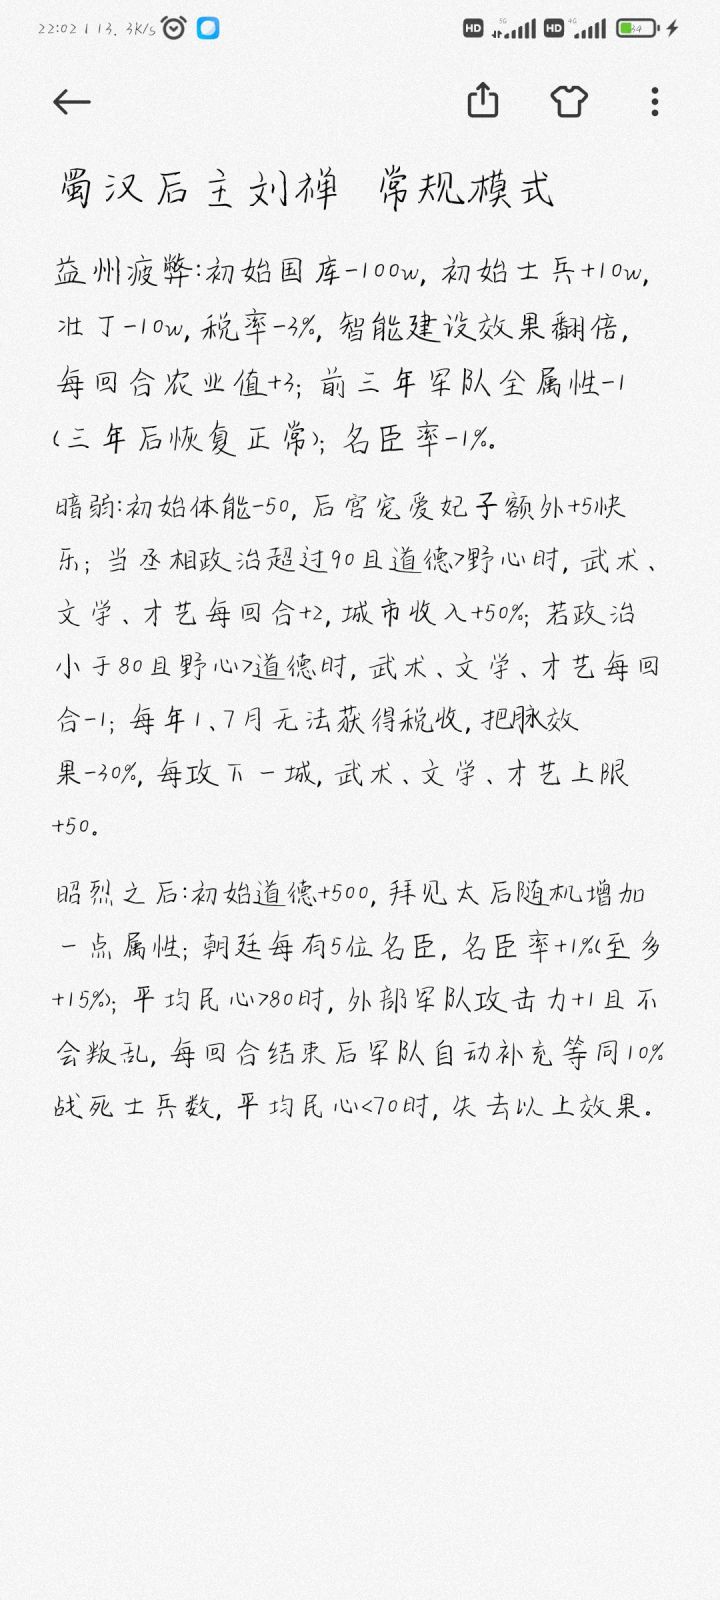 22:02 | 13.3K/s HD 5G HD 4G 34
蜀汉后主刘禅 常规模式
益州疲弊:初始国库-100w, 初始士兵+10w,
壮丁-10w, 税率-3%, 智能建设效果翻倍,
每回合农业值+3; 前三年军队全属性-1
(三年后恢复正常); 名臣率-1%。
暗弱:初始体能-50, 后宫宠爱妃子额外+5快
乐; 当丞相政治超过90且道德>野心时, 武术、
文学、才艺每回合+2, 城市收入+50%; 若政治
小于80且野心>道德时, 武术、文学、才艺每回
合-1; 每年1、7月无法获得税收, 把脉效
果-30%, 每攻下一城, 武术、文学、才艺上限
+50。
昭烈之后:初始道德+500, 拜见太后随机增加
一点属性; 朝廷每有5位名臣, 名臣率+1%(至多
+15%); 平均民心>80时, 外部军队攻击力+1且不
会叛乱, 每回合结束后军队自动补充等同10%
战死士兵数, 平均民心<70时, 失去以上效果。